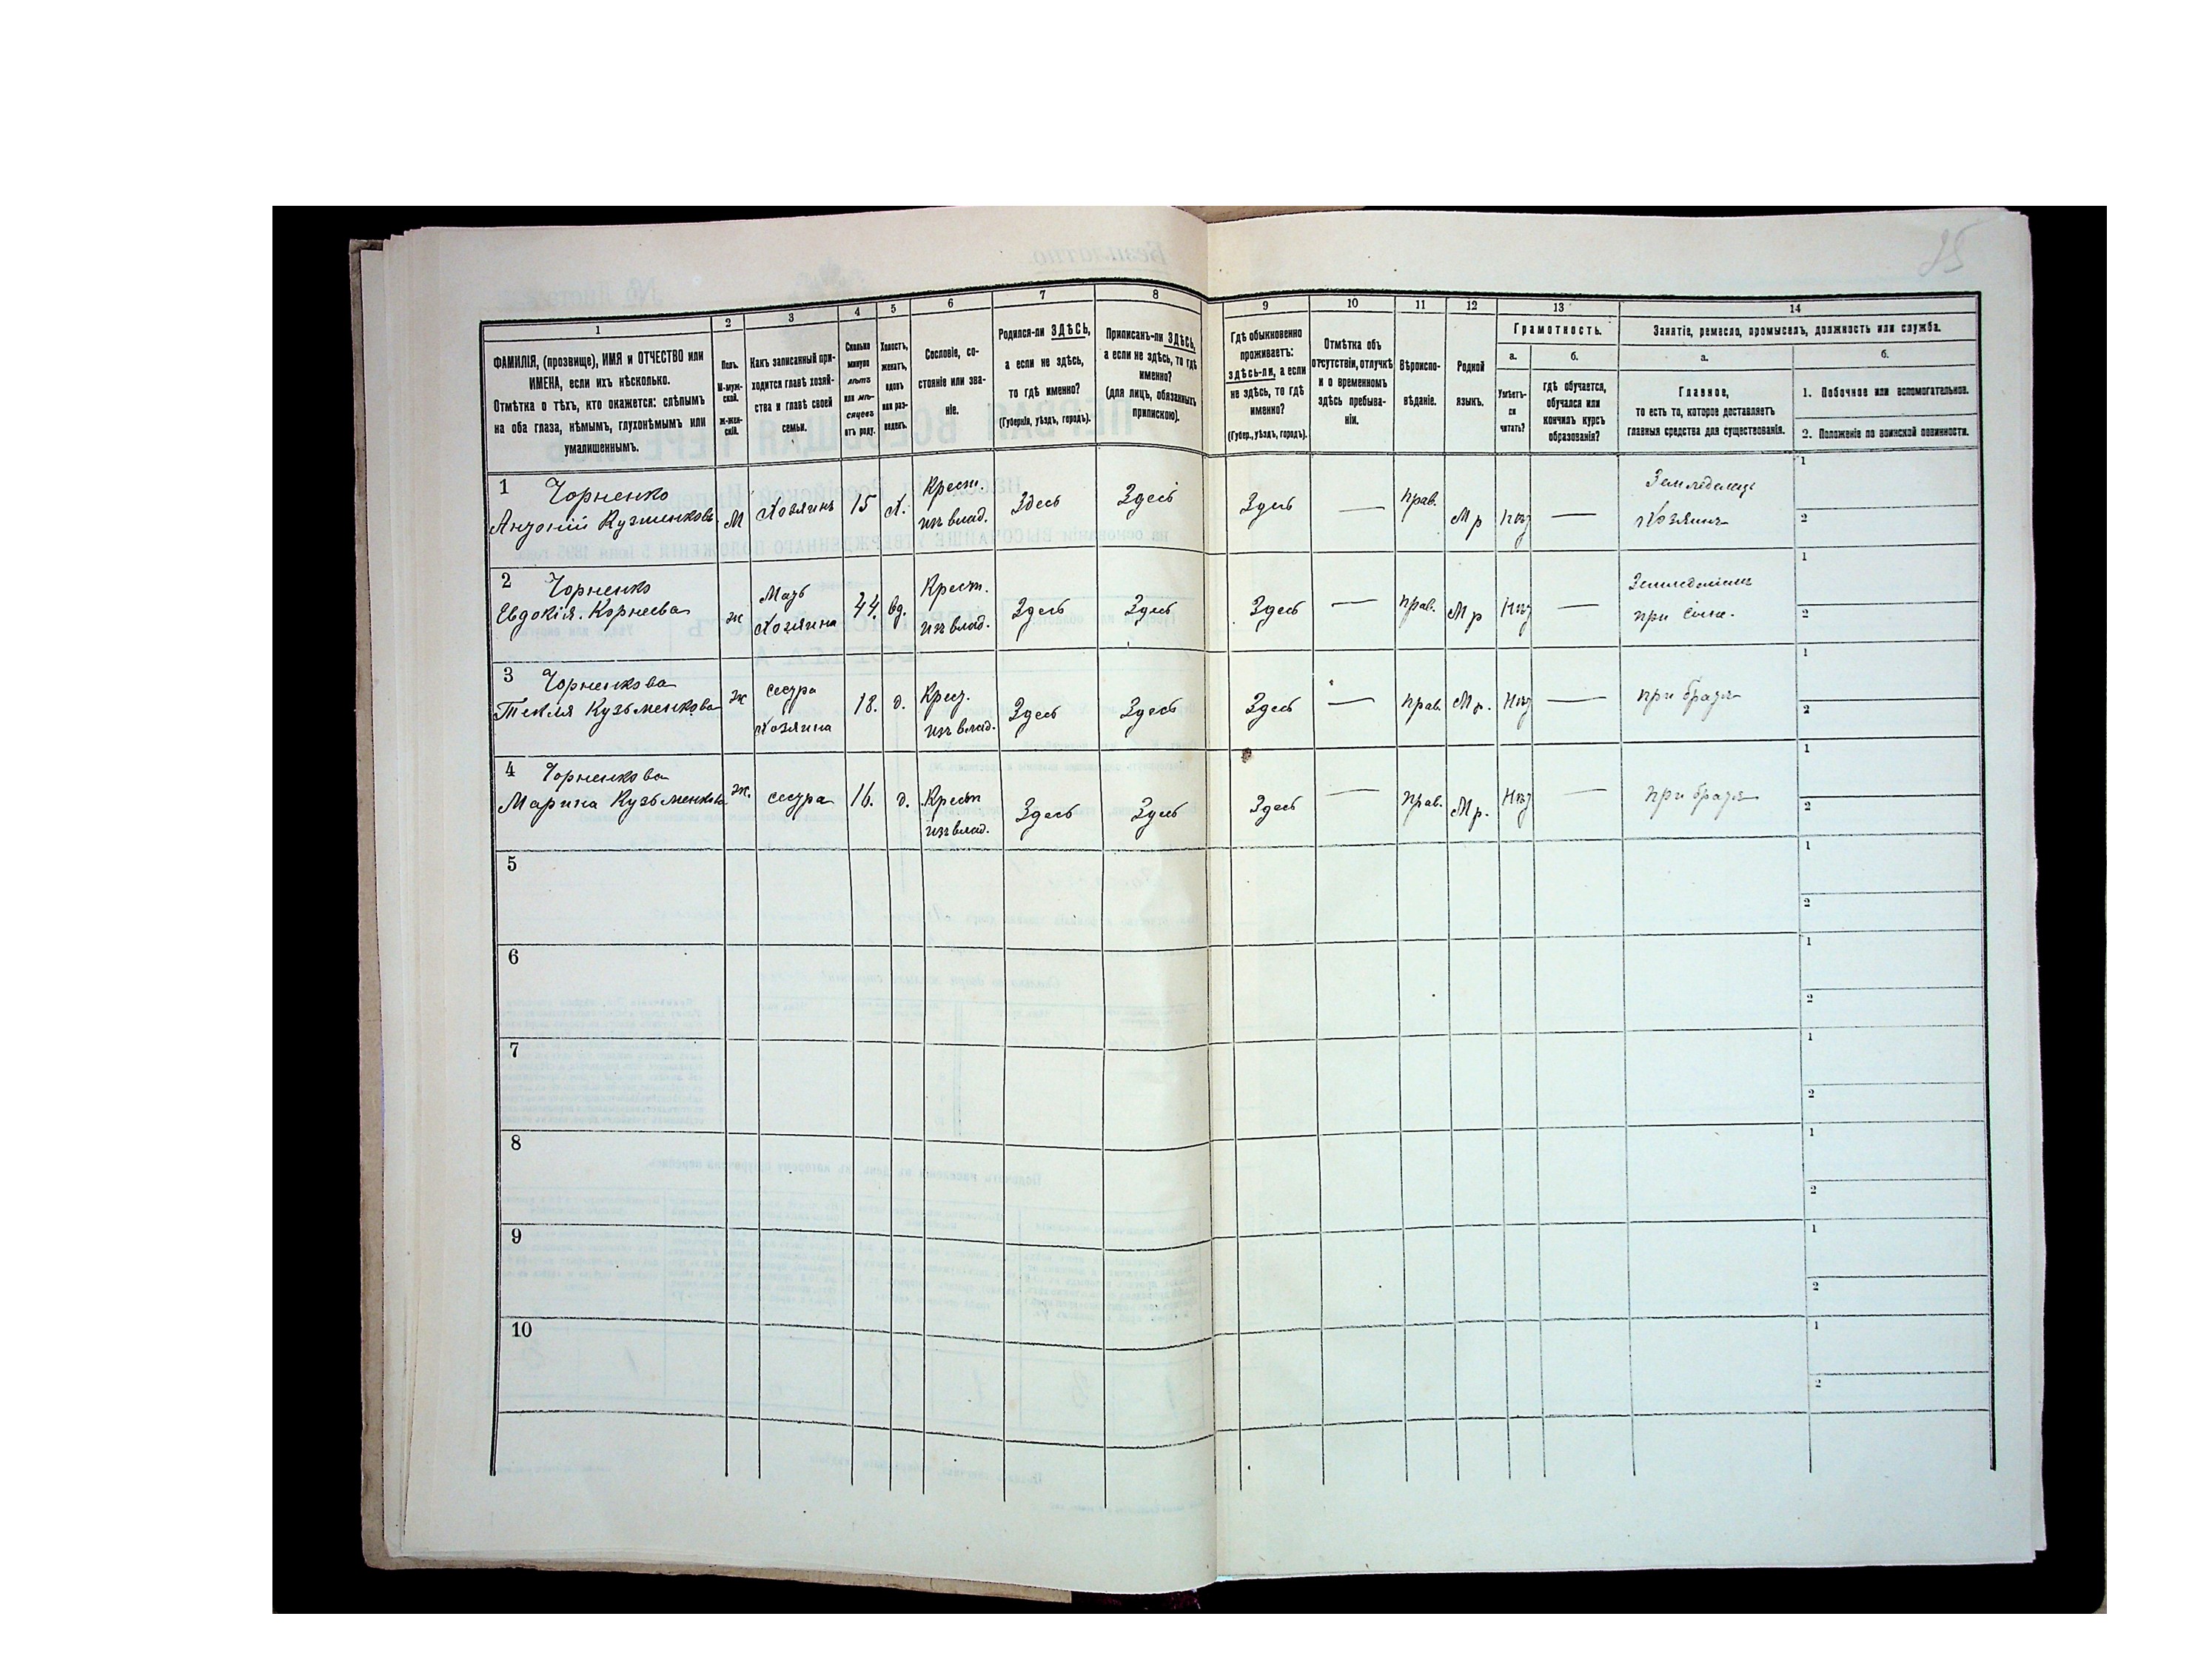 95
1 2 3 4 5 6 7 8 9 10 11 12 13 14
ФАМИЛІЯ, (прозвище), ИМЯ и ОТЧЕСТВО или
ИМЕНА, если ихъ нѣсколько.
Отмѣтка о тѣхъ, кто окажется: слѣпымъ
на оба глаза, нѣмымъ, глухонѣмымъ или
умалишеннымъ.
Полъ.
М-муж-
ской.
ж-жен-
скій.
Какъ записанный при-
ходится главѣ хозяй-
ства и главѣ своей
семьи.
Сколько
минуло
лѣтъ
или мѣ-
сяцевъ
отъ роду.
Холостъ,
женатъ,
вдовъ
или раз-
веденъ.
Сословіе, со-
стояніе или зва-
ніе.
Родился-ли ЗДѢСЬ,
а если не здѣсь,
то гдѣ именно?
(Губернія, уѣздъ, городъ).
Приписанъ-ли ЗДѢСЬ,
а если не здѣсь, то гдѣ
именно?
(для лицъ, обязанныхъ
припискою).
Гдѣ обыкновенно
проживаетъ:
здѣсь-ли, а если
не здѣсь, то гдѣ
именно?
(Губер., уѣздъ, городъ).
Отмѣтка объ
отсутствіи, отлучкѣ
и о временномъ
здѣсь пребыва-
ніи.
Вѣроиспо-
вѣданіе.
Родной
языкъ.
Грамотность.
а.
Умѣетъ-
ли
читать?
б.
гдѣ обучается,
обучался или
кончилъ курсъ
образованія?
Занятіе, ремесло, промыселъ, должность или служба.
а.
Главное,
то есть то, которое доставляетъ
главныя средства для существованія.
б.
1. Побочное или вспомогательное.
2. Положеніе по воинской повинности.
1 Чорненко
Антоній Кузменковъ
М
Хозяинъ
15
х.
Крест.
изъ влад.
Здесь
Здесь
Здесь
—
прав.
Мр
Нѣт
—
Земледелец
Хозяинъ
1
2
2 Чорненко
Евдокія. Корнеева
ж
Мать
Хозяина
44.
вд.
Крест.
изъ влад.
Здесь
Здесь
Здесь
—
прав.
Мр
Нѣт
—
при сыне.
1
2
3 Чорненкова
Текля Кузьменкова
ж
сестра
Хозяина
18.
д.
Крест.
изъ влад.
Здесь
Здесь
Здесь
—
прав.
Мр.
Нѣт
—
при братѣ
1
2
4 Чорненкова
Марина Кузьменкова
ж.
сестра
16.
д.
Крест
изъ влад.
Здесь
Здесь
Здесь
—
прав.
Мр.
Нѣт
—
при братѣ
1
2
5
1
2
6
1
2
7
1
2
8
1
2
9
1
2
10
1
2